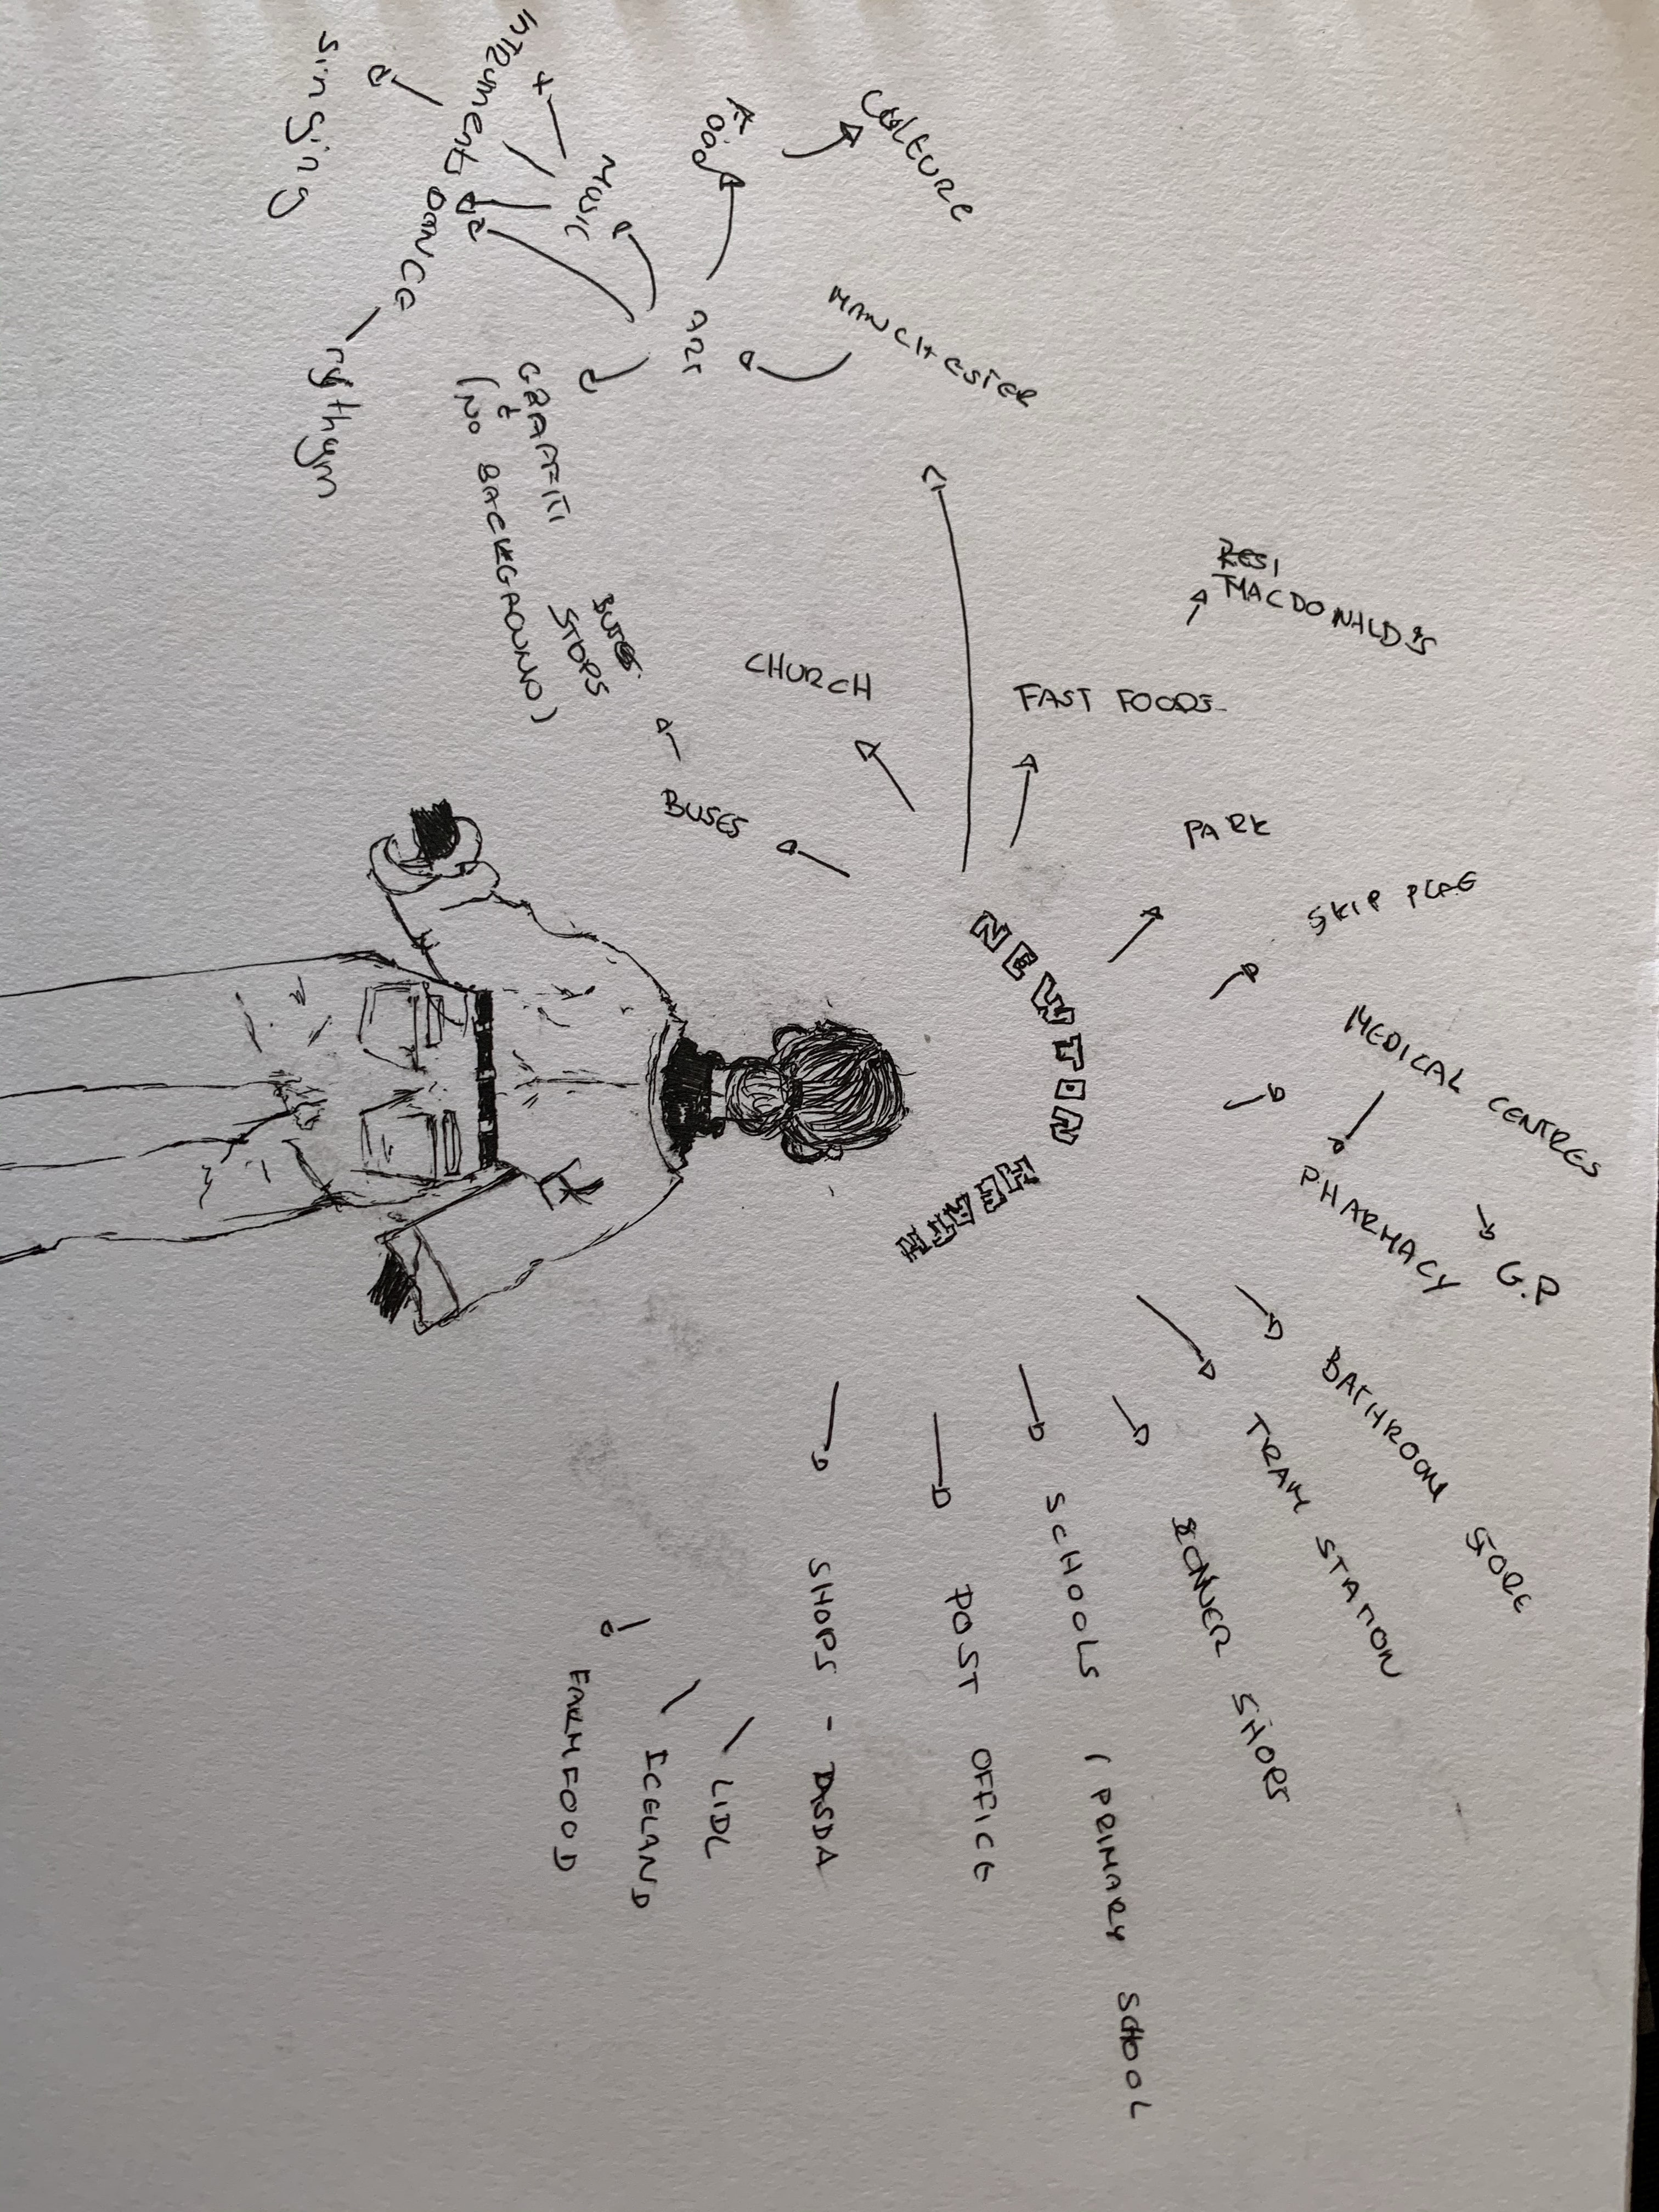 NEWTON
HEATH
BUSES
BUSES
STOPS
CHURCH
MANCHESTER
ART
FOOD
CULTURE
MUSIC
INSTRUMENT
singing
DANCE
rythym
GRAFFITI
(NO BACKGROUND)
FAST FOODS
MACDONALD'S
PARK
MEDICAL CENTRES
PHARMACY
G.P
BATHROOM STORE
TRAM STATION
CONNER SHOPS
SCHOOLS (PRIMARY SCHOOL
POST OFFICE
SHOPS - ASDA
LIDL
ICELAND
FARMFOOD